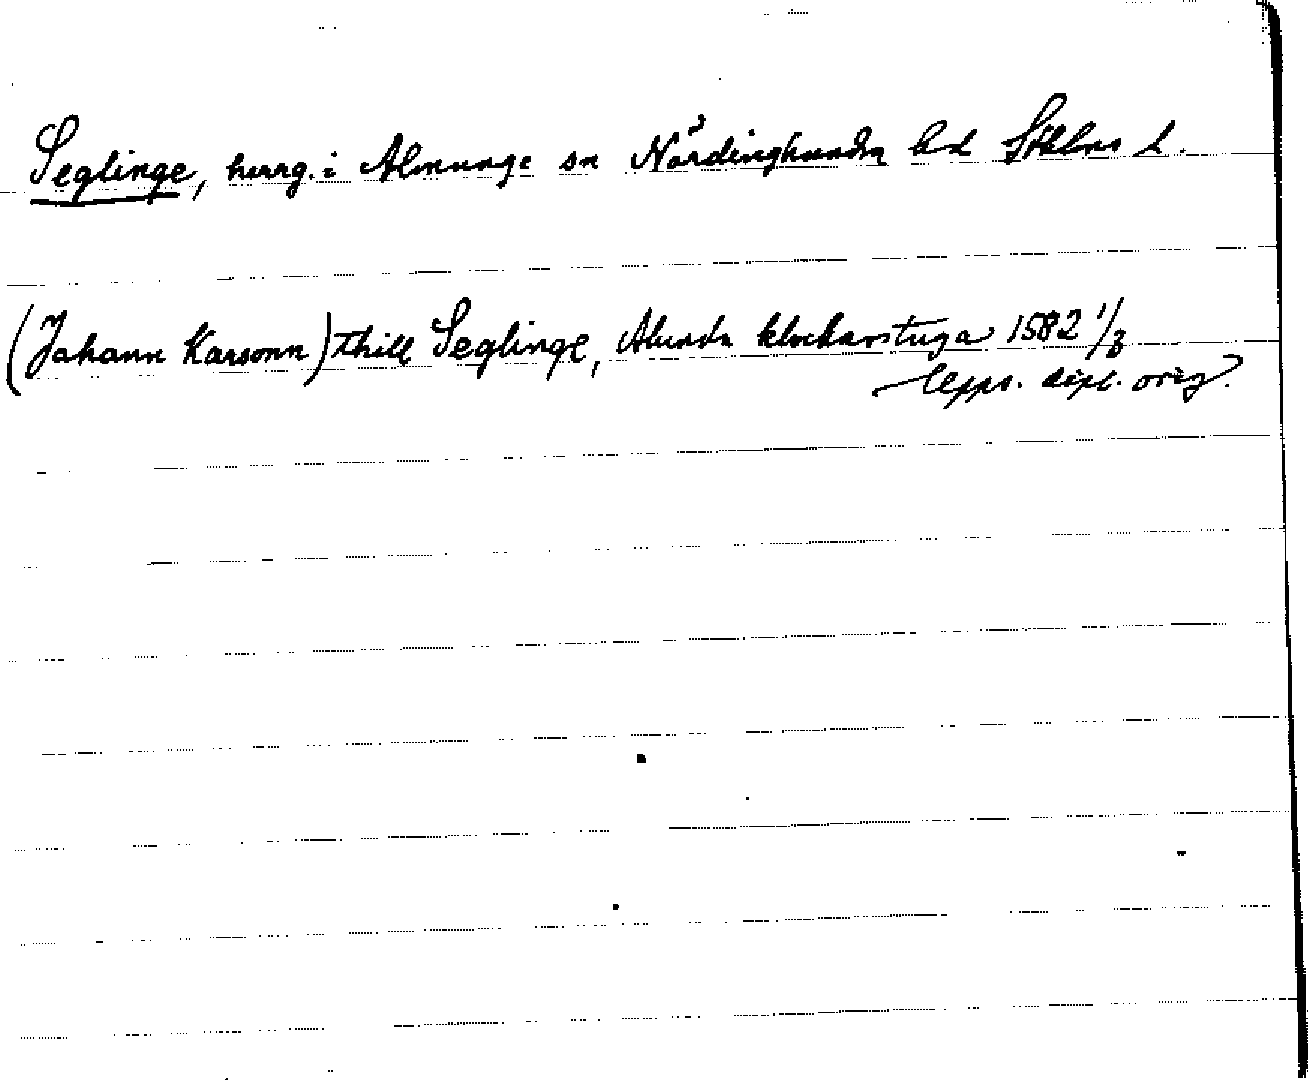 Seglinge, herrg. i Almunge sn Närdinghundra hd Sthlms l.
(Johann Karsonn) thill Seglinge, Alunda klockarstuga 1582 1/3
Upps. dipl. orig.